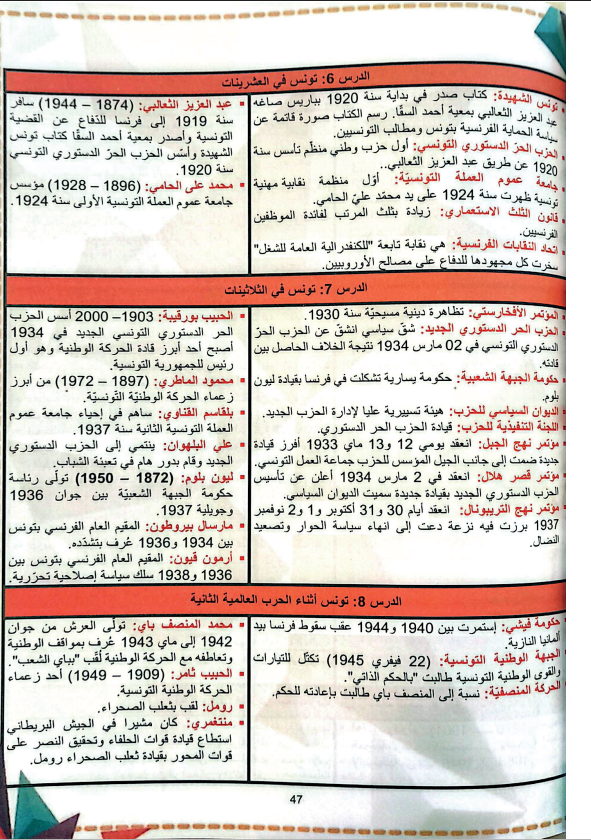 الدرس 6: تونس في العشرينات
تونس الشهيدة: كتاب صدر في بداية سنة 1920 بباريس صاغه
عبد العزيز الثعالبي بمعية أحمد السقّا. رسم الكتاب صورة قاتمة عن
سياسة الحماية الفرنسية بتونس ومطالب التونسيين.
الحزب الحرّ الدستوري التونسي: أول حزب وطني منظّم تأسس سنة
1920 عن طريق عبد العزيز الثعالبي..
جامعة عموم العملة التونسيّة: أوّل منظمة نقابية مهنية
تونسية ظهرت سنة 1924 على يد محمّد عليّ الحامي.
قانون الثلث الاستعماري: زيادة بثلث المرتب لفائدة الموظفين
الفرنسيين.
اتحاد النقابات الفرنسية: هي نقابة تابعة "للكنفدرالية العامة للشغل"
سخرت كل مجهودها للدفاع على مصالح الأوروبيين.
▪ عبد العزيز الثعالبي: (1874 – 1944) سافر
سنة 1919 إلى فرنسا للدفاع عن القضية
التونسية وأصدر بمعية أحمد السقّا كتاب تونس
الشهيدة وأسّس الحزب الحرّ الدستوري التونسي
سنة 1920.
▪ محمد علي الحامي: (1896 – 1928) مؤسس
جامعة عموم العملة التونسية الأولى سنة 1924.
الدرس 7: تونس في الثلاثينات
المؤتمر الأفخارستي: تظاهرة دينية مسيحيّة سنة 1930.
الحزب الحر الدستوري الجديد: شقّ سياسي انشقّ عن الحزب الحرّ
الدستوري التونسي في 02 مارس 1934 نتيجة الخلاف الحاصل بين
قادته.
حكومة الجبهة الشعبية: حكومة يسارية تشكلت في فرنسا بقيادة ليون
بلوم.
الديوان السياسي للحزب: هيئة تسييرية عليا لإدارة الحزب الجديد.
اللجنة التنفيذية للحزب: قيادة الحزب الحر الدستوري.
مؤتمر نهج الجبل: انعقد يومي 12 و13 ماي 1933 أفرز قيادة
جديدة ضمت إلى جانب الجيل المؤسس للحزب جماعة العمل التونسي.
مؤتمر قصر هلال: انعقد في 2 مارس 1934 أعلن عن تأسيس
الحزب الدستوري الجديد بقيادة جديدة سميت الديوان السياسي.
مؤتمر نهج التريبونال: انعقد أيام 30 و31 أكتوبر و1 و2 نوفمبر
1937 برزت فيه نزعة دعت إلى انهاء سياسة الحوار وتصعيد
النضال.
▪ الحبيب بورقيبة: 1903– 2000 أسس الحزب
الحر الدستوري التونسي الجديد في 1934
أصبح أحد أبرز قادة الحركة الوطنية وهو أول
رئيس للجمهورية التونسية.
▪ محمود الماطري: (1897 – 1972) من أبرز
زعماء الحركة الوطنيّة التّونسيّة.
▪ بلقاسم القناوي: ساهم في إحياء جامعة عموم
العملة التونسية الثانية سنة 1937.
▪ علي البلهوان: ينتمي إلى الحزب الدستوري
الجديد وقام بدور هام في تعبئة الشباب.
▪ ليون بلوم: (1872 – 1950) تولّى رئاسة
حكومة الجبهة الشعبيّة بين جوان 1936
وجويلية 1937.
▪ مارسال بيروطون: المقيم العام الفرنسي بتونس
بين 1934 و1936 عُرف بتشدّده.
▪ أرمون قيون: المقيم العام الفرنسي بتونس بين
1936 و1938 سلك سياسة إصلاحية تحرّرية.
الدرس 8: تونس أثناء الحرب العالمية الثانية
حكومة فيشي: إستمرت بين 1940 و1944 عقب سقوط فرنسا بيد
ألمانيا النازية.
الجبهة الوطنية التونسية: (22 فيفري 1945) تكتّل للتيارات
والقوى الوطنية التونسية طالبت "بالحكم الذاتي".
الحركة المنصفيّة: نسبة إلى المنصف باي طالبت بإعادته للحكم.
▪ محمد المنصف باي: تولّى العرش من جوان
1942 إلى ماي 1943 عُرف بمواقف الوطنية
وتعاطفه مع الحركة الوطنية لُقّب "بباي الشعب".
▪ الحبيب ثامر: (1909 – 1949) أحد زعماء
الحركة الوطنية التونسية.
▪ رومل: لقب بثعلب الصحراء.
▪ منتغمري: كان مشيرا في الجيش البريطاني
استطاع قيادة قوات الحلفاء وتحقيق النصر على
قوات المحور بقيادة ثعلب الصحراء رومل.
47